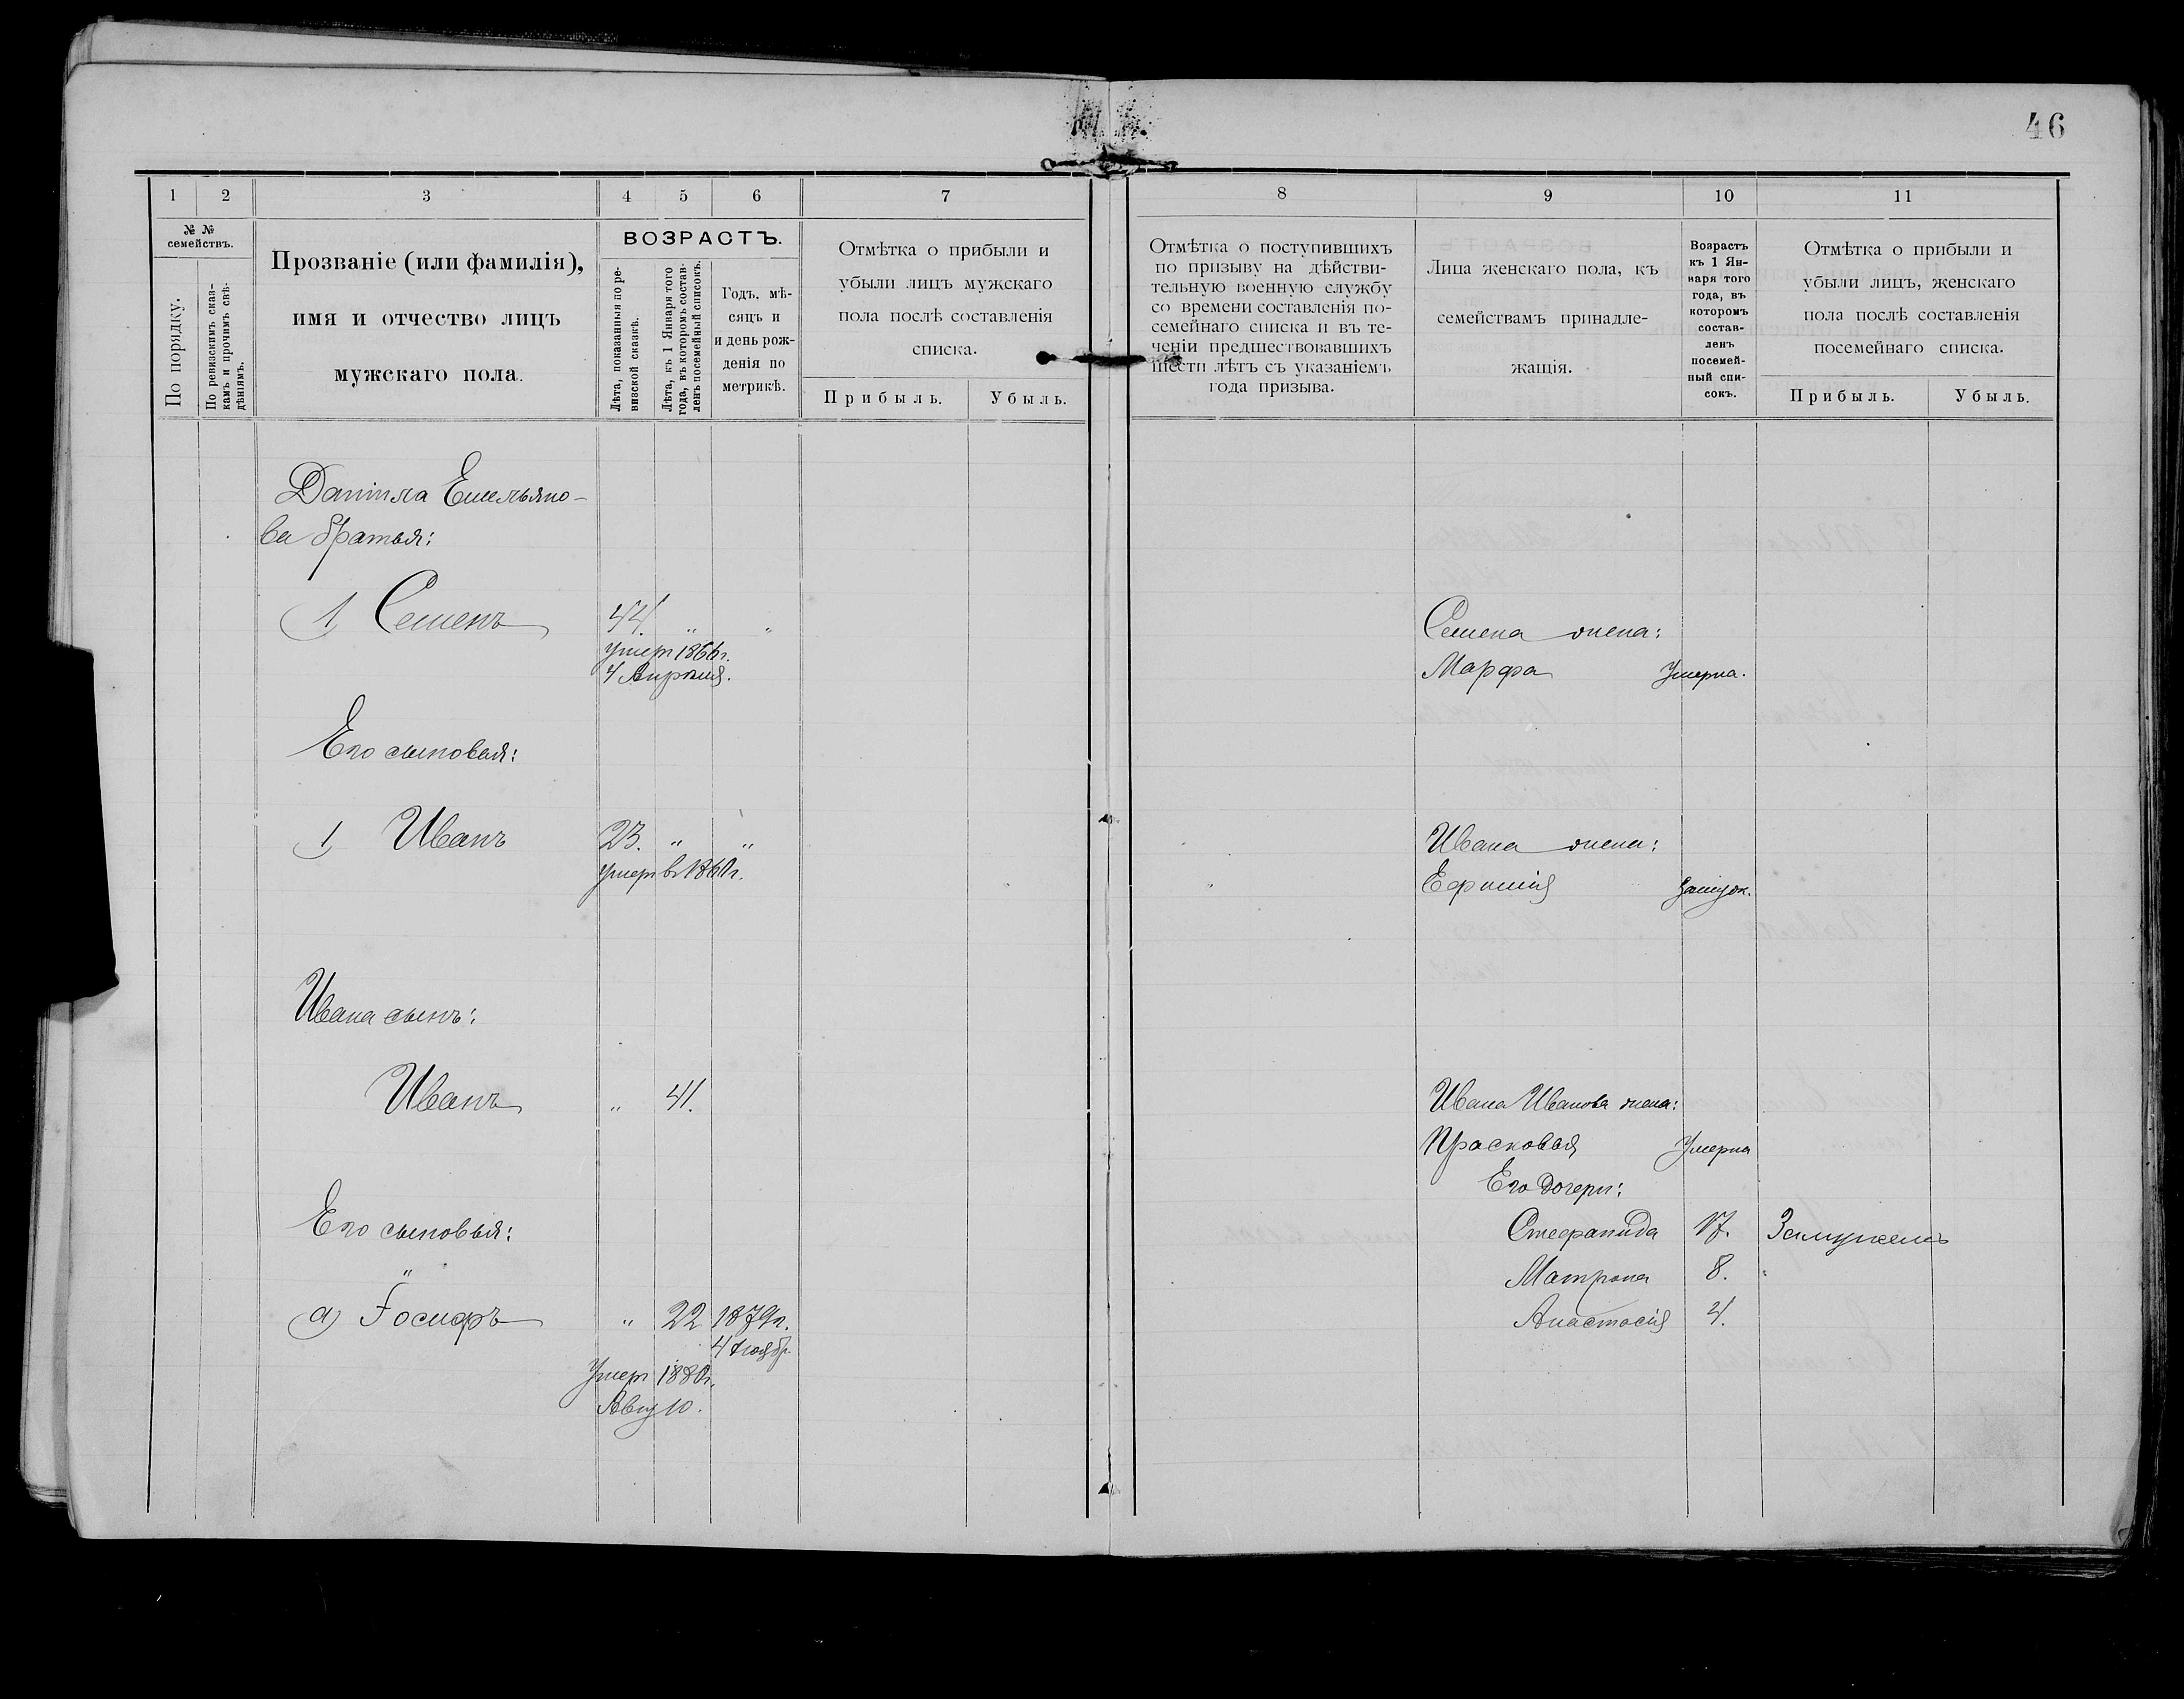 46
1 2 3 4 5 6 7 8 9 10 11
№ №
семействъ.
По порядку.
По ревизскимъ сказ-
камъ и прочимъ свѣ-
дѣніямъ.
Прозваніе (или фамилія),
имя и отчество лицъ
мужскаго пола.
ВОЗРАСТЪ.
Лѣта, показанныя по ре-
визской сказкѣ.
Лѣта, къ 1 Января того
года, въ которомъ состав-
ленъ посемейный списокъ.
Годъ, мѣ-
сяцъ и
и день рож-
денія по
метрикѣ.
Отмѣтка о прибыли и
убыли лицъ мужскаго
пола послѣ составленія
списка.
Прибыль. Убыль.
Отмѣтка о поступившихъ
по призыву на дѣйстви-
тельную военную службу
со времени составленія по-
семейнаго списка и въ те-
ченіи предшествовавшихъ
шести лѣтъ съ указаніемъ
года призыва.
Лица женскаго пола, къ
семействамъ принадле-
жащія.
Возрастъ
къ 1 Ян-
варя того
года, въ
которомъ
состав-
ленъ
посемей-
ный спи-
сокъ.
Отмѣтка о прибыли и
убыли лицъ, женскаго
пола послѣ составленія
посемейнаго списка.
Прибыль. Убыль.
Даниила Емельяно-
ва братья:
1) Семенъ 44. " "
умеръ 1866 г.
4 Апрѣля.
Его сыновья:
1) Иванъ 23. " "
умеръ въ 1860 г.
Ивана сынъ:
Иванъ " 41.
Его сыновья:
"
а) Іосифъ " 22 1879 г.
4 Ноябр.
Умеръ 1880 г.
Авг 10.
Семена жена:
Марфа Умерла.
Ивана жена:
Ефимія Замуж.
Ивана Иванова жена:
Прасковья Умерла
Его дочери:
Стефанида 17. Замужемъ
Матрона 8. "
Анастасія 4.